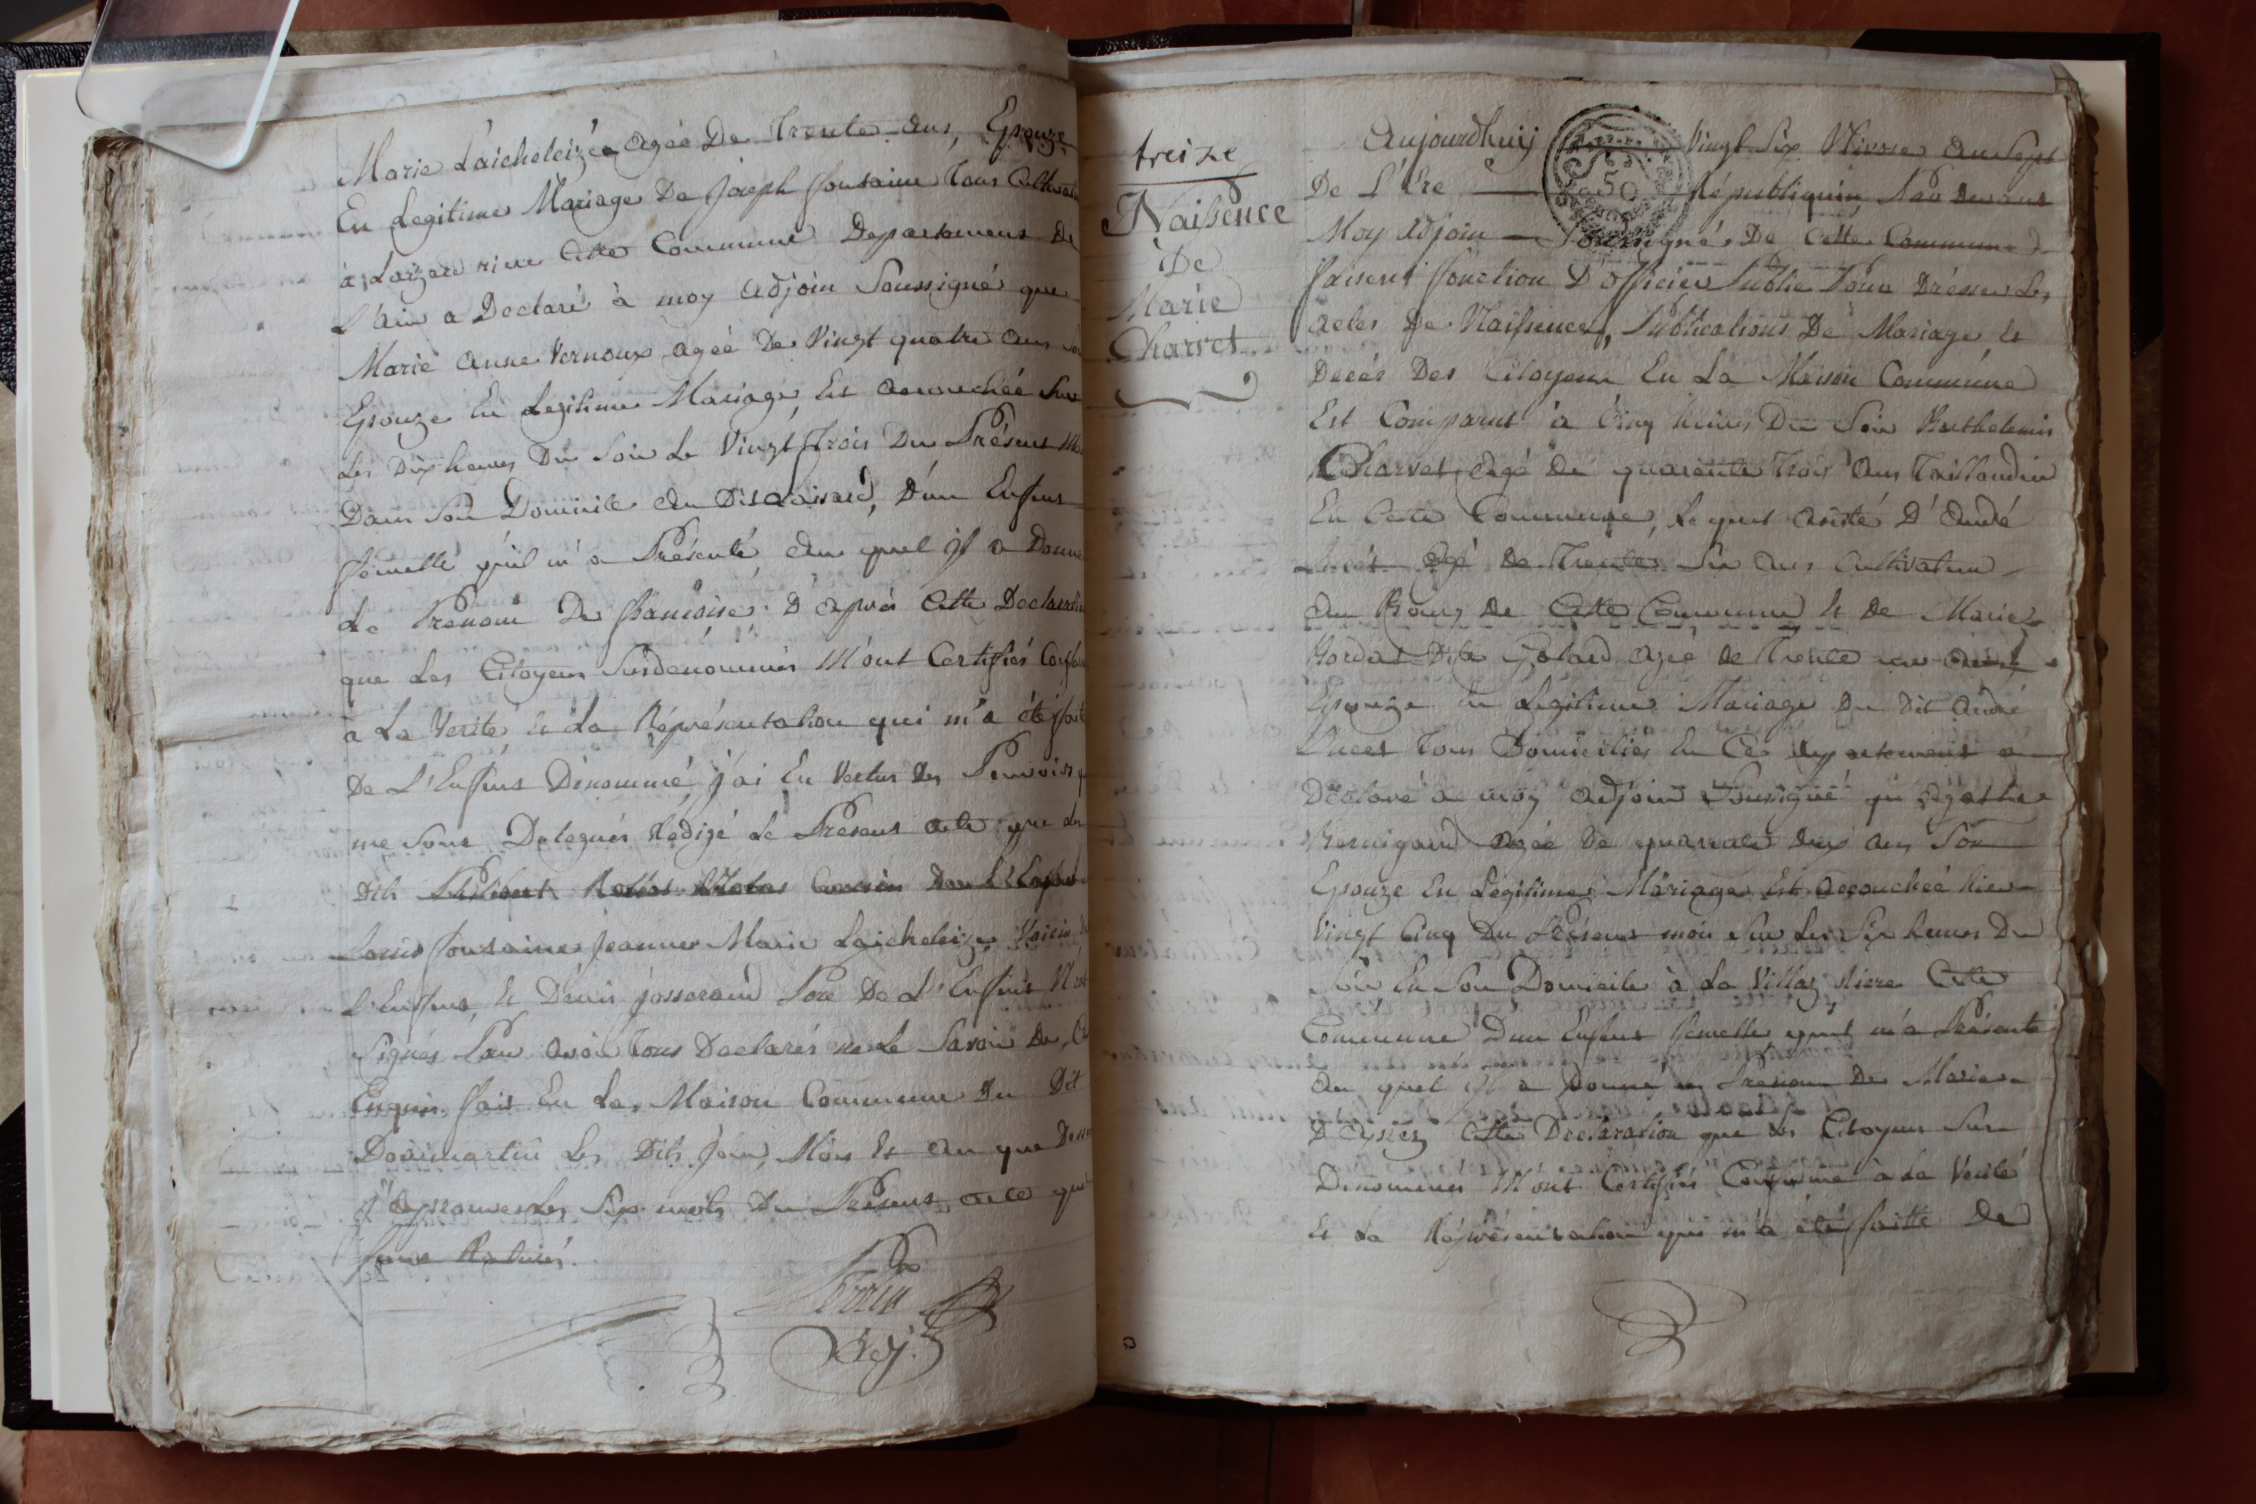 Marie Laicheleizée agée De Trente ans, Epouze
En Legitime Mariage De Joseph fontaine Tous Cultivateu
à Laizard riere Cette Commune Departement De
L'ain a Declaré à moy adjoin Soussigné que
Marie anne Vernoux agée De Vingt quatre ans
Epouze En Legitime Mariage, Est accouchée Sur
Les Dix heures Du Soir Le Vingt Trois Du Présent
Dans Son Domicile au D'un Enfens
femelle qu'il m'a Présenté, au quel jl a Donné
Le Prenom De francoise; D'après Cette Declaration
que Les Citoyens Surdenommés M'ont Certifiés
à La Verité et La Représentation qui m'a été fait
De L'Enfens Denommé, j'ai En Vertus Des Pouvoirs
me Sont Delegués Redigé Le Présent acte que Les
Dits Philibert
Louis fontaine Jeanne Marie Laicheleize Voisin
L'Enfens, et Denis josserand Pere De L'Enfens
Signés Pour avoir Tous Declarés ne Le Savoir De
Enquis, fait En La Maison Commune Du Dit
Donmartin Les Dits Jour, Mois Et an que
J'approuve Les Six mots Du Présent acte qui
Sont Raturés.
Morin
Rey.
treize
Naissence
De
Marie
Charvet
Aujourdhuij Vingt Six Nivose an Sept
50
De L'Ere Républiquin, Par Devant
Moy adjoin Soussignés De Cette Commune
faisent fonction D'officier Public Pour Drésser Les
actes De Naissence, Publications De Mariage et
Décés Des Citoyens En La Maison Commune
Est Comparut à Cinq heures Du Soir Barthelemis
Charvet agé De quarente Trois ans Taillandier
En Cette Commune, Lequel asisté D'andé
agé De Trente Six ans Cultivateur
au Bourg De Cette Commune et De Marie
Dite agée De Trente un ans
Epouze En Légitime Mariage Du Dit andré
Tous Domiciliés En Ce Departement a
Déclaré a moy adjoin Soussigné qu'agathe
agée De quarante Deux ans Son
Epouze En Légitime Mariage Est accouchée hier
Vingt Cinq Du Présent mois Sur Les Six heures Du
Soir En Son Domicile à La Villaz riere Cette
Commune D'un Enfens femelle quel m'a Présenté
au quel jl a Donné Le Prenom De Marie
D'après Cette Declaration que Les Citoyens Sur
Denommés M'ont Certifiés Conforme à La Verité
Et La Représentation qui m'a été faitte De